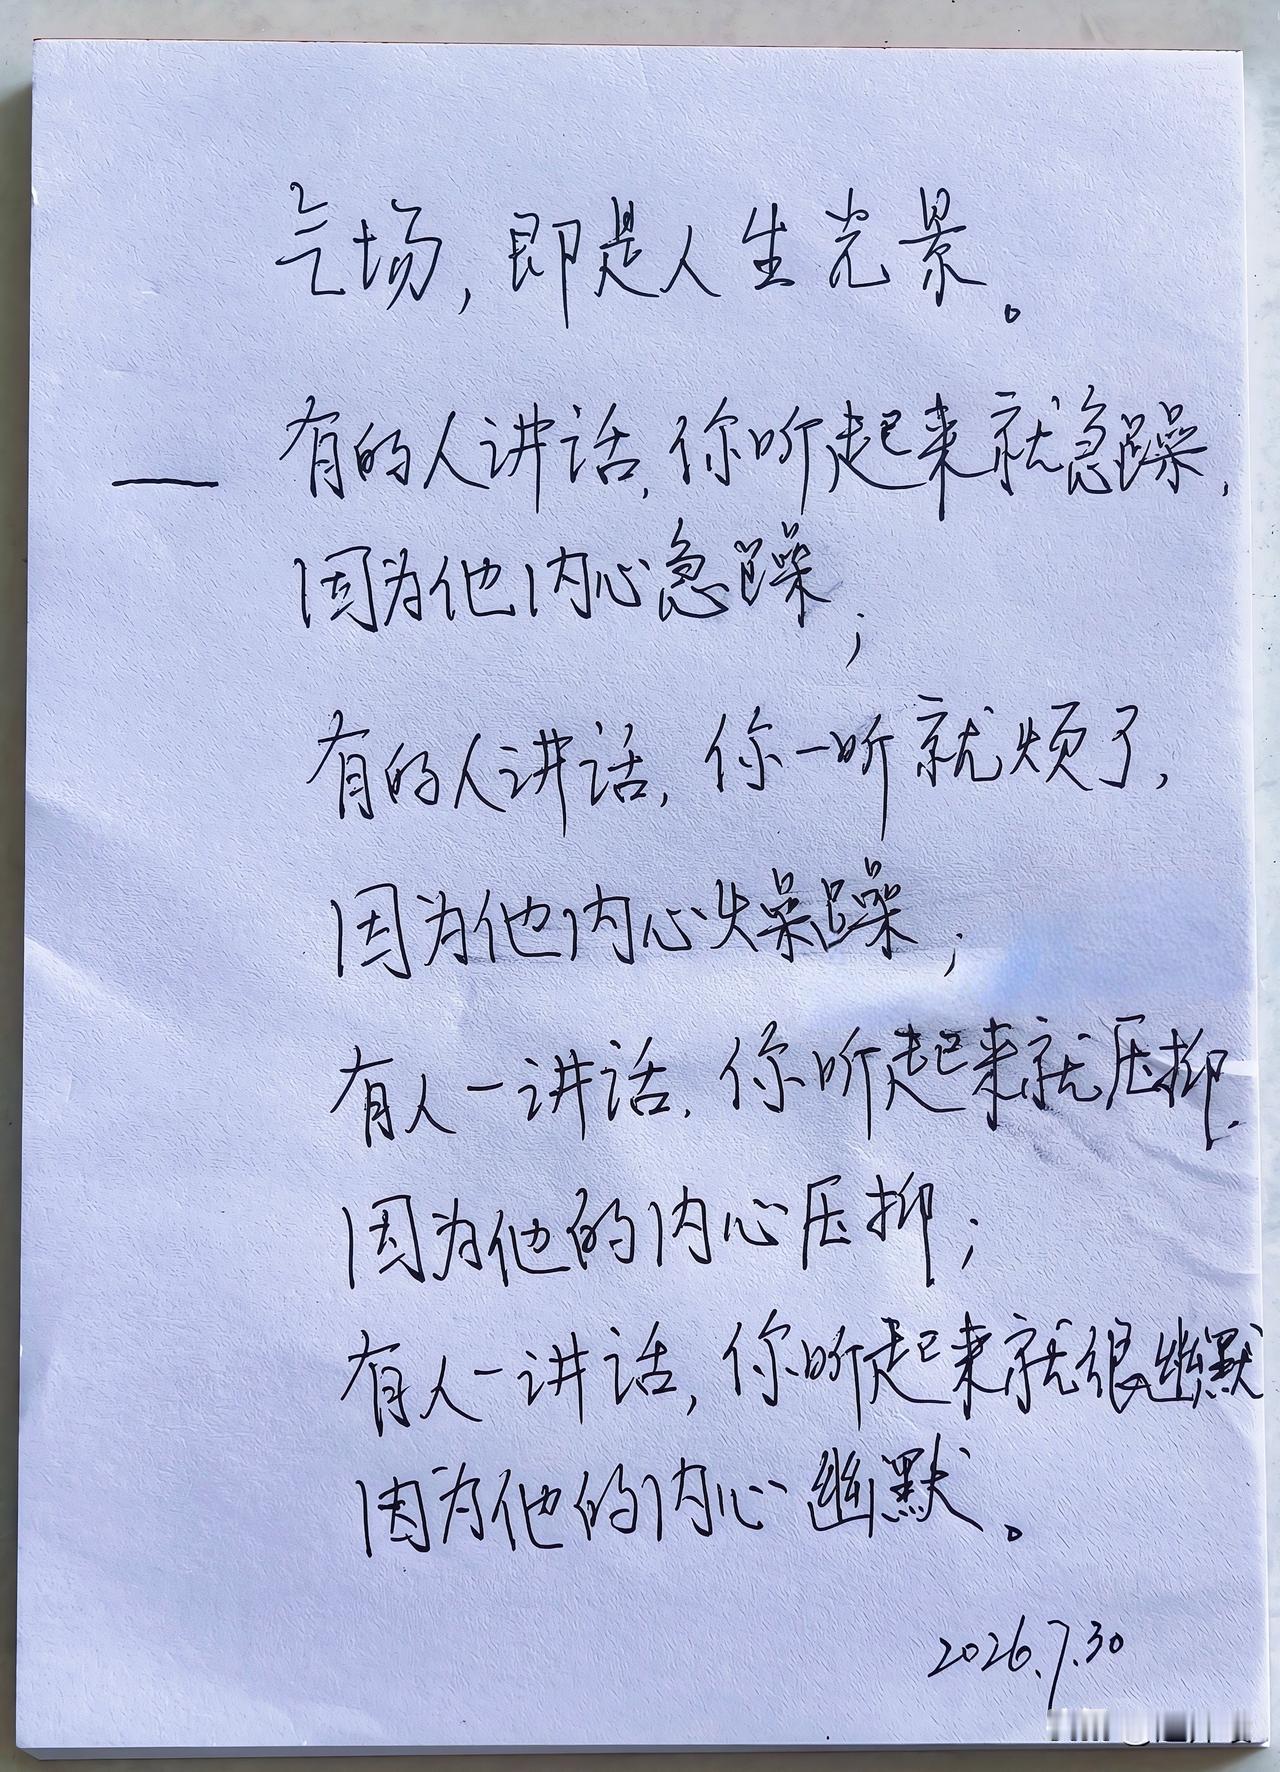 气场，即是人生光景。
一 有的人讲话，你听起来就急躁，
因为他内心急躁；
有的人讲话，你一听就烦了，
因为他内心燥躁；
有人一讲话，你听起来就压抑，
因为他的内心压抑；
有人一讲话，你听起来就很幽默
因为他的内心幽默。
2026.7.30